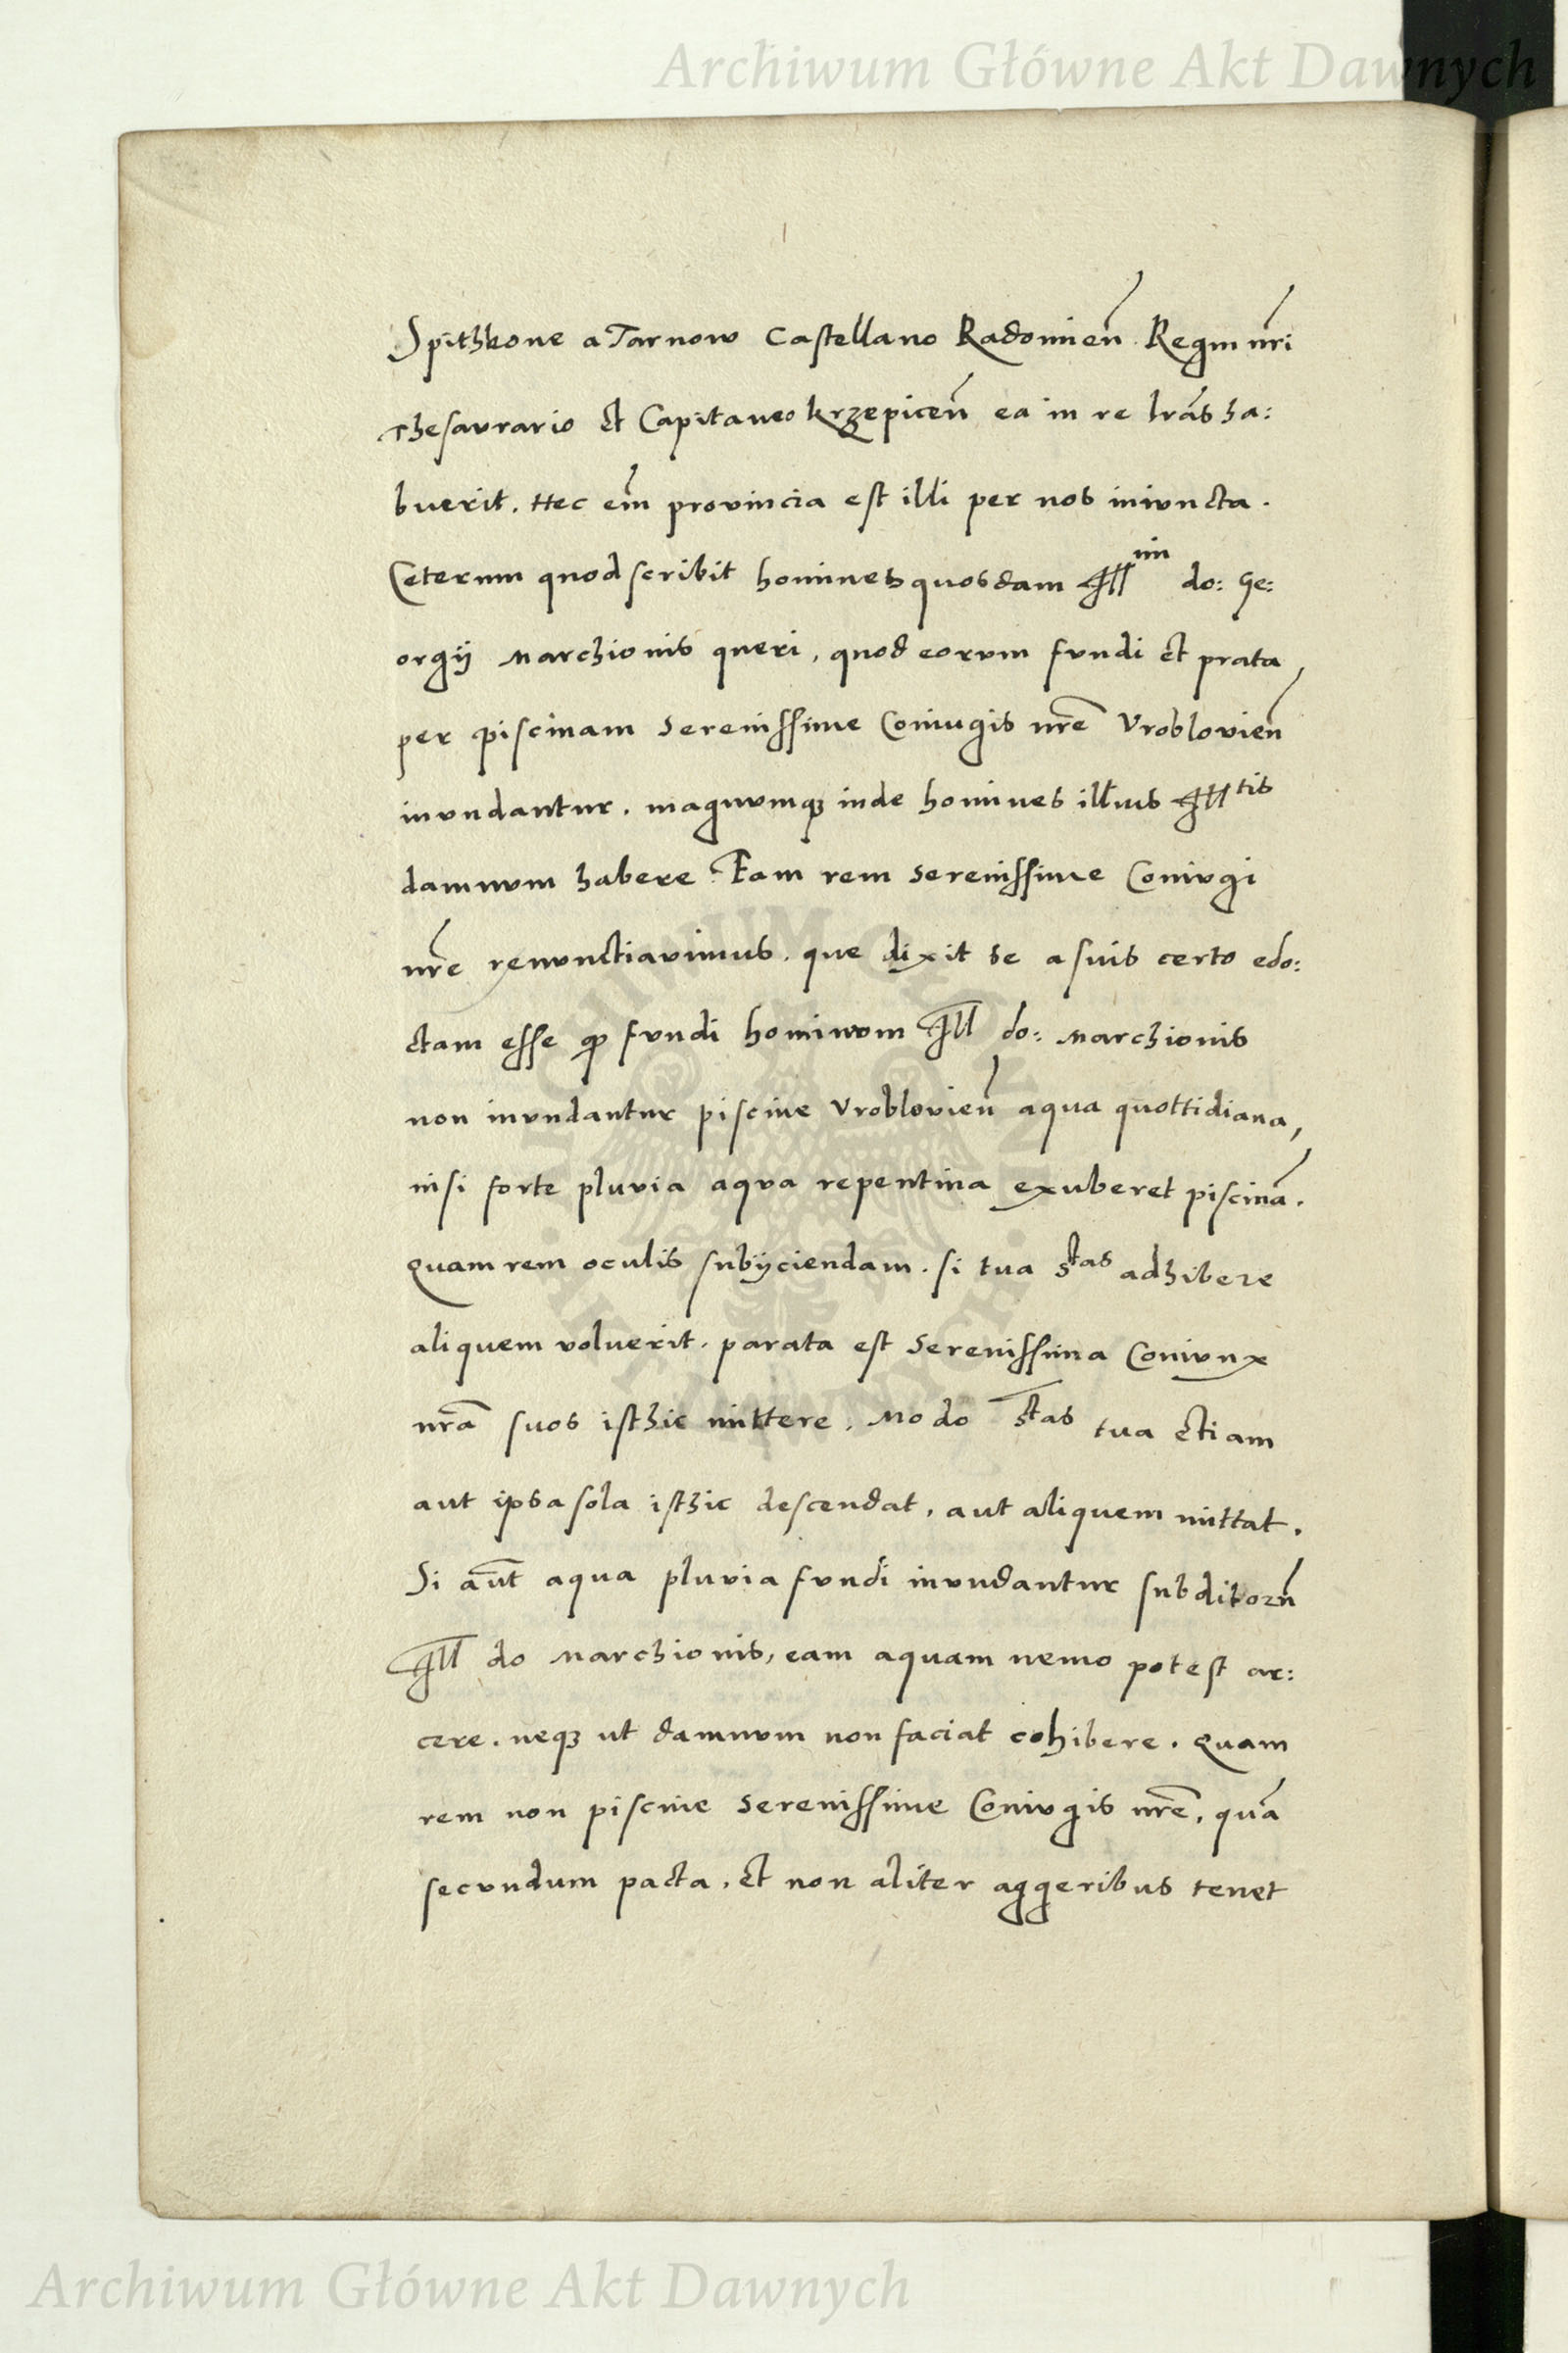 Archiwum Główne Akt Dawnych
Spithkone a Tarnow Castellano Radomień Regni nri
Thesaurario et Capitaneo krzepiceń ea in re lrās ha:
buerit. Hec em provincia est illi per nos iniuncta.
Ceterum quod scribit homines quosdam Ill mi do: Ge:
orgij Marchionis queri, quod eorum fundi et prata
per piscinam Serenissime Coniugis nre Vroblovień
inundantur. magnumq inde homines illius Ill tis
damnum habere. Eam rem Serenissime Coniugi
nre renunctiavimus. que dixit se a suis certo edo:
ctam esse qp fundi hominum Ill do: Marchionis
non inundantur piscine Vroblovień aqua quottidiana,
nisi forte pluvia aqua repentina exuberet piscinā.
Quam rem oculis subijciendam. si tua Stas adhibere
aliquem voluerit. parata est Serenissima Coniunx
nrā suos isthic mittere. Modo Stas tua etiam
aut ipsa sola isthic descendat, aut aliquem mittat.
Si aut aqua pluvia fundi inundantur subditorū
Ill do Marchionis, eam aquam nemo potest ar:
cere. neq ut damnum non faciat cohibere. Quam
rem non piscine Serenissime Coniugis nre, quā
secundum pacta, et non aliter aggeribus tenet
Archiwum Główne Akt Dawnych